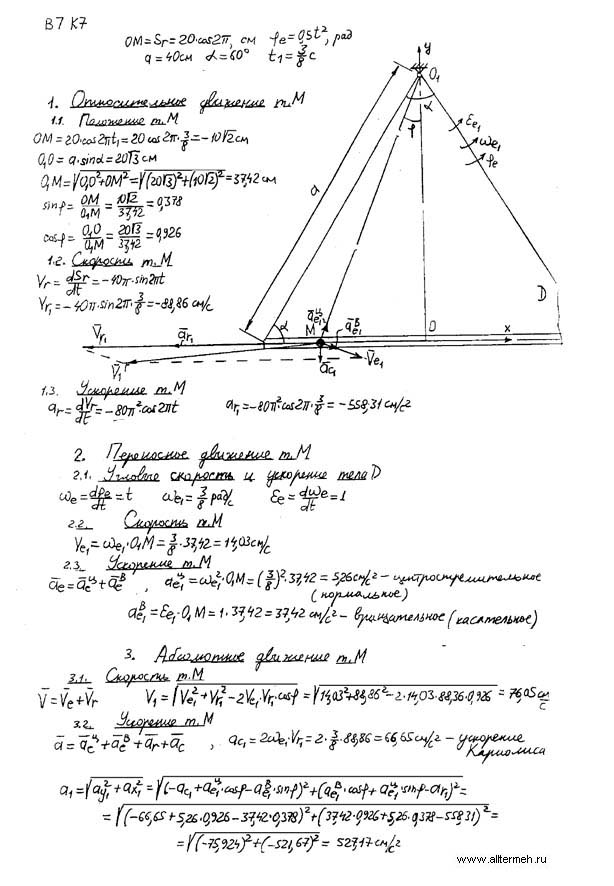 В7 К7
OM=Sr=20·cos2π, см φe=0,5t², рад
a=40см α=60° t1=3/8 c
1. Относительное движение т.М
1.1. Положение т.М
OM=20·cos2πt1=20cos2π·3/8=-10√2см
O1O=a·sinα=20√3см
O1M=√(O1O²+OM²)=√((20√3)²+(10√2)²)=37,42см
sinφ=OM/O1M=10√2/37,42=0,378
cosφ=O1O/O1M=20√3/37,42=0,926
1.2. Скорость т.М
Vr=dSr/dt=-40π·sin2πt
Vr1=-40π·sin2π·3/8=-88,86 см/с
y
O1
α
φ
εe1
ωe1
φe
a
D
α
āe1ц
M
āe1в
O
x
V̄r1
ār1
V̄1
āc1
V̄e1
1.3. Ускорение т.М
ar=dVr/dt=-80π²·cos2πt ar1=-80π²cos2π·3/8=-558,31 см/с²
2. Переносное движение т.М
2.1. Угловые скорость и ускорение тела D
ωe=dφe/dt=t ωe1=3/8 рад/с εe=dωe/dt=1
2.2. Скорость т.М
Ve1=ωe1·O1M=3/8·37,42=14,03см/с
2.3. Ускорение т.М
āe=āeц+āeв, ae1ц=ωe1²·O1M=(3/8)²·37,42=5,26см/с²-центростремительное
(нормальное)
ae1в=εe1·O1M=1·37,42=37,42 см/с²-вращательное (касательное)
3. Абсолютное движение т.М
3.1. Скорость т.М
V̄=V̄e+V̄r V1=√(Ve1²+Vr1²-2Ve1·Vr1·cosφ)=√(14,03²+88,86²-2·14,03·88,36·0,926)=76,05 см/с
3.2. Ускорение т.М
ā=āeц+āeв+ār+āc, ac1=2ωe1·Vr1=2·3/8·88,86=66,65см/с²-ускорение
Кариолиса
a1=√(ay1²+ax1²)=√((-ac1+ae1ц·cosφ-ae1в·sinφ)²+(ae1в·cosφ+ae1ц·sinφ-ar1)²)=
=√((-66,65+5,26·0,926-37,42·0,378)²+(37,42·0,926+5,26·0,378-558,31)²)=
=√((-75,924)²+(-521,67)²)=527,17 см/с²
www.alltermeh.ru